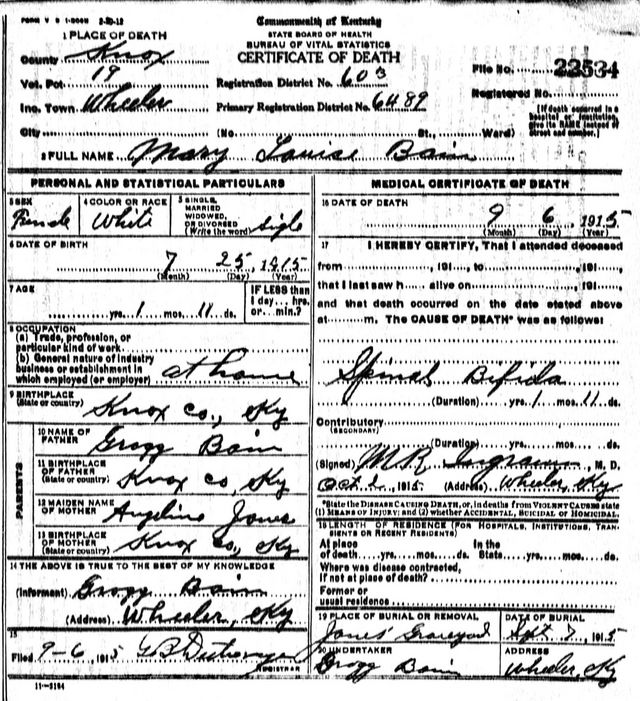 FORM V S 1-500M 2-20-12
Commonwealth of Kentucky
STATE BOARD OF HEALTH
BUREAU OF VITAL STATISTICS
CERTIFICATE OF DEATH
1 PLACE OF DEATH
County Knox
Vot. Pct 19
Inc. Town Wheeler
City
Registration District No. 603
Primary Registration District No. 6489
(No. St., Ward)
File No. 22534
Registered No.
[If death occurred in a hospital or institution, give its NAME instead of street and number.]
2 FULL NAME Mary Louise Bain
PERSONAL AND STATISTICAL PARTICULARS
3 SEX
Female
4 COLOR OR RACE
White
5 SINGLE, MARRIED WIDOWED, OR DIVORCED (Write the word) sigle
6 DATE OF BIRTH
7 25, 1915
(Month) (Day) (Year)
7 AGE
yrs. 1 mos. 11 ds.
IF LESS than 1 day... hrs. or... min.?
8 OCCUPATION
(a) Trade, profession, or particular kind of work
(b) General nature of industry business or establishment in which employed (or employer) at home
9 BIRTHPLACE (State or country) Knox co., Ky
PARENTS
10 NAME OF FATHER Grogg Bain
11 BIRTHPLACE OF FATHER (State or country) Knox co, Ky
12 MAIDEN NAME OF MOTHER Angeline Jones
13 BIRTHPLACE OF MOTHER (State or country) Knox co, Ky
14 THE ABOVE IS TRUE TO THE BEST OF MY KNOWLEDGE
(Informant) Grogg Bain
(Address) Wheeler, Ky
15
Filed 9-6, 1915
REGISTRAR
11-3184
MEDICAL CERTIFICATE OF DEATH
16 DATE OF DEATH
9 6, 1915
(Month) (Day) (Year)
17 I HEREBY CERTIFY, That I attended deceased
from , 191 , to , 191 ,
that I last saw h alive on , 191 ,
and that death occurred on the date stated above
at m. The CAUSE OF DEATH* was as follows:
Spinal Bifida
(Duration) yrs. 1 mos. 11 ds.
Contributory
(SECONDARY)
(Duration) yrs. mos. ds.
(Signed) M.R. Ingram, M. D.
Oct 2, 1915 (Address) Wheeler, Ky
*State the DISEASE CAUSING DEATH, or, in deaths from VIOLENT CAUSES state (1) MEANS OF INJURY; and (2) whether ACCIDENTAL, SUICIDAL or HOMICIDAL.
18 LENGTH OF RESIDENCE (FOR HOSPITALS, INSTITUTIONS, TRANSIENTS OR RECENT RESIDENTS)
At place of death yrs. mos. ds. In the State yrs. mos. ds.
Where was disease contracted, if not at place of death?
Former or usual residence
19 PLACE OF BURIAL OR REMOVAL
Jones Graveyard
DATE OF BURIAL
Sept 7, 1915
20 UNDERTAKER
Grogg Bain
ADDRESS
Wheeler, Ky